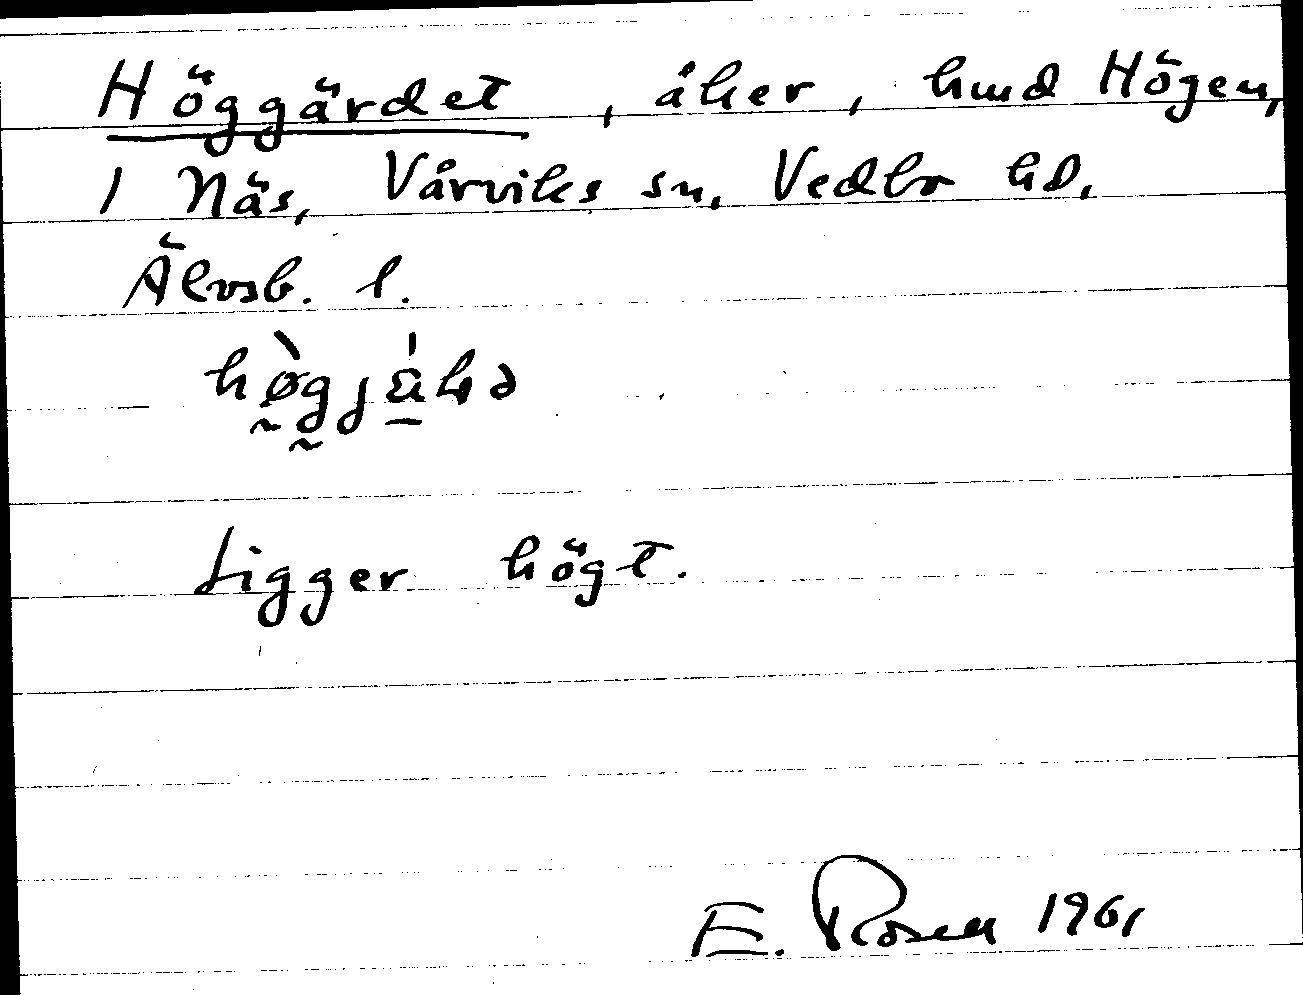 Höggärdet, åker, hmd Högen,
1 Näs, Vårviks sn, Vedbo hd,
Älvsb. l.
Ligger högt.
E. Rosen 1961